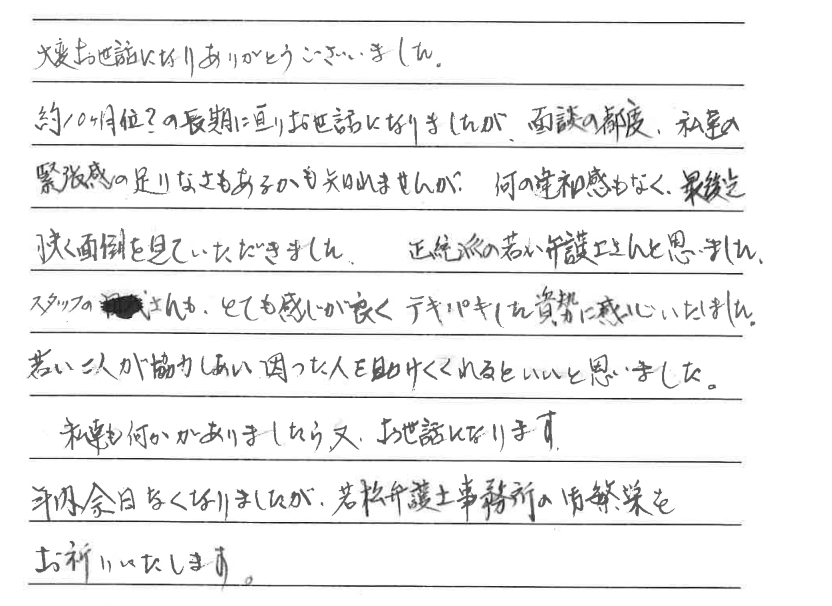 大変お世話になりありがとうございました。
約10ヶ月位?の長期に亘りお世話になりましたが、面談の都度、私達の
緊張感の足りなさもあるかも知れませんが、何の違和感もなく、最後迄
快く面倒を見ていただきました。 正統派の若い弁護士さんと思いました。
スタッフの さんも、とても感じが良くテキパキした資勢に感心いたしました。
若い二人が協力しあい困った人を助けてくれるといいと思いました。
私達も何かがありましたら又、お世話になります。
年内余日なくなりましたが、若松弁護士事務所の御繁栄を
お祈りいたします。